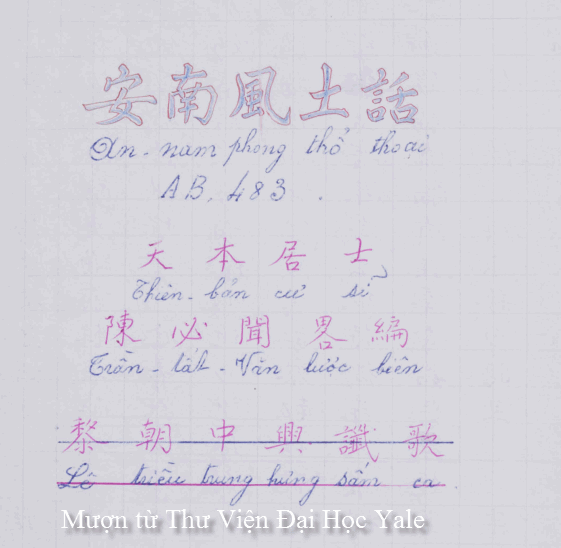 安南風土話
An-nam phong thổ thoại
AB. 483.
天本居士
Thiên-bản cư sĩ
陳必聞畧編
Trần-tất-Văn lược biên
黎朝中興讖歌
Lê triều trung hưng sấm ca.
Mượn từ Thư Viện Đại Học Yale